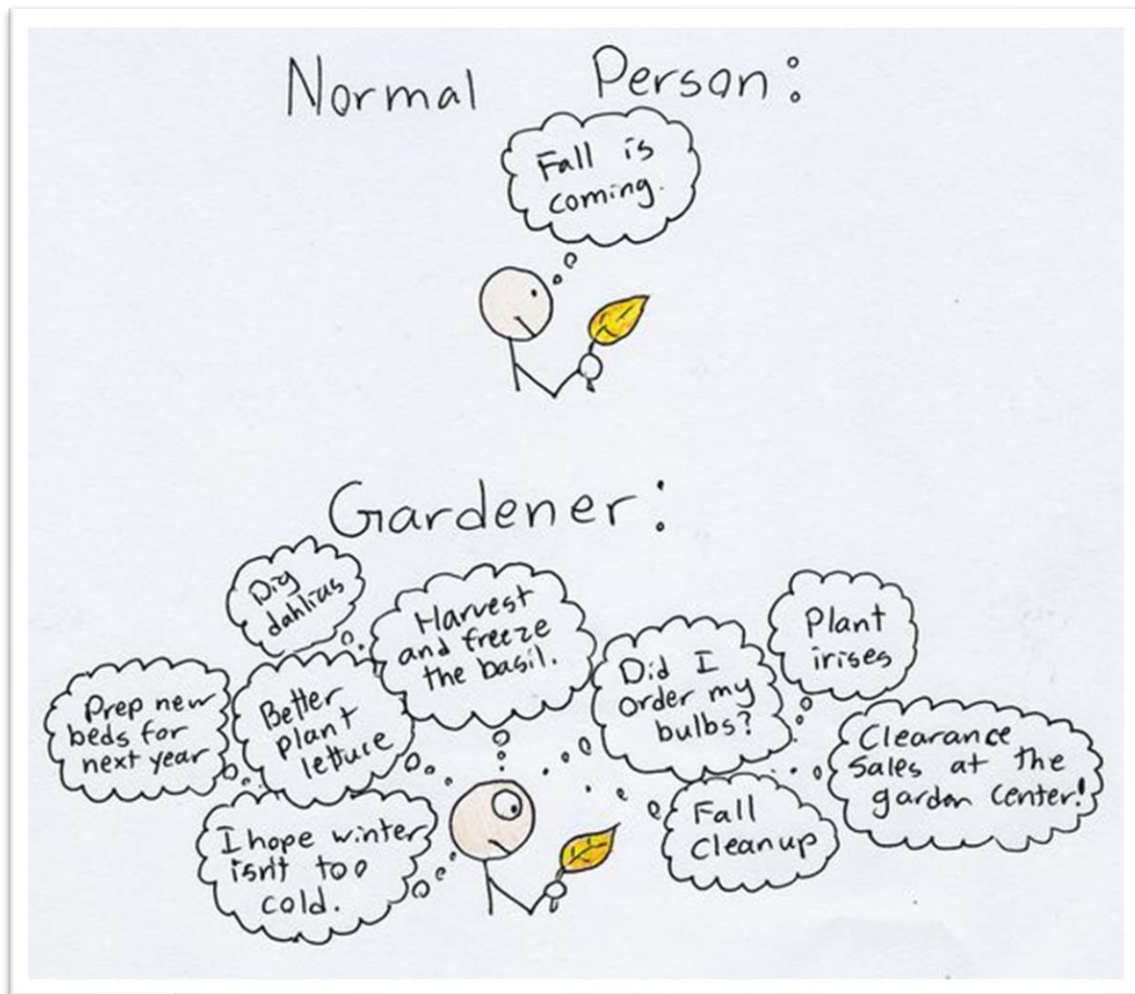 Normal Person:
Fall is
coming.
Gardener:
Dig
dahlias
Harvest
and freeze
the basil.
Plant
irises
Did I
order my
bulbs?
Prep new
beds for
next year
Better
plant
lettuce
Clearance
sales at the
garden center!
I hope winter
isn't too
cold.
Fall
cleanup